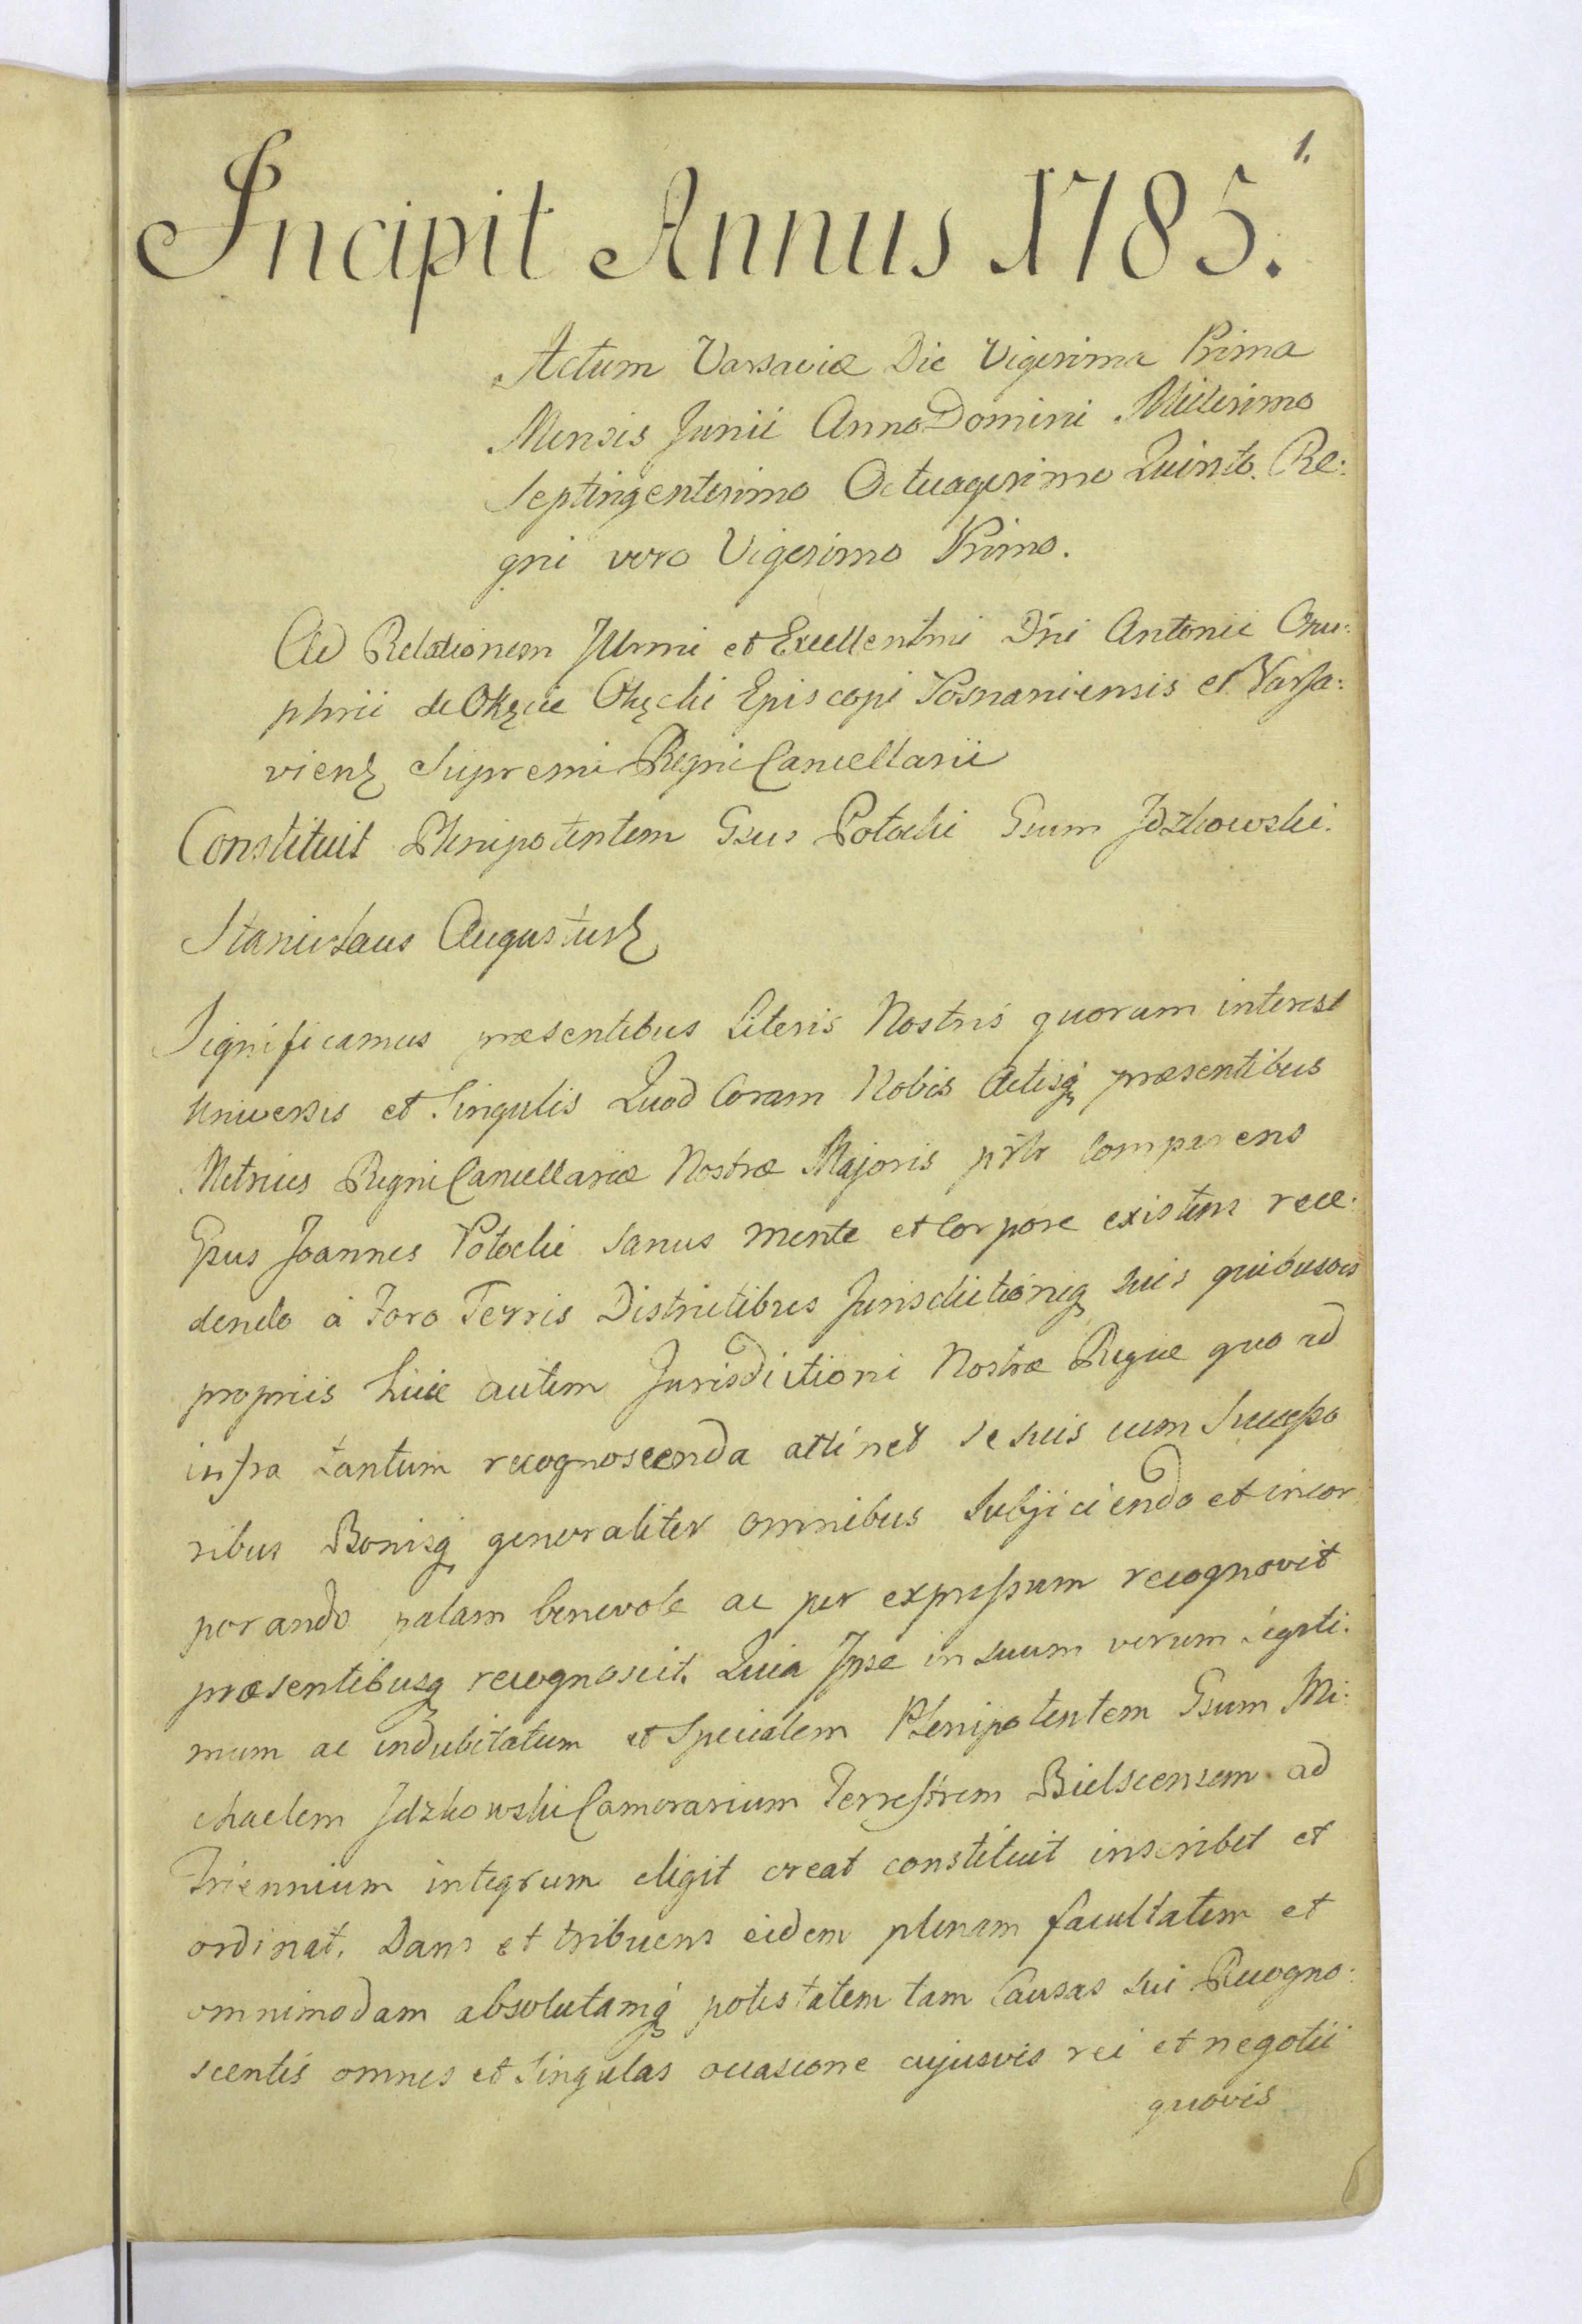 1.
Incipit Annus 1785.
Actum Varsaviæ Die Vigesima Prima
Mensis Junii Anno Domini Millesimo
Septingentesimo Octuagesimo Quinto. Re:
gni vero Vigesimo Primo.
Ad Relationem Illrmi et Excellentmi Dñi Antonii Onu:
phrii de Okęcie Okęcki Episcopi Posnaniensis et Varsa:
viens Supremi Regni Cancellarii
Constituit Plenipotentem Gsus Potocki Gsum Jdzkowski.
Stanislaus Augustus
Significamus præsentibus Literis Nostris quorum interest
Universis et Singulis Quod Coram Nobis Actisq præsentibus
Metrices Regni Cancellariæ Nostræ Majoris pñlr Comparens
Gsus Joannes Potocki Sanus mente et Corpore existens rece:
dendo à Foro Terris Districtibus Jurisdictioniq suis quibusvis
propriis huic autem Jurisdictioni Nostræ Regiæ quo ad
infra tantum recognoscenda attinet se suis cum Successo
ribus Bonisq generaliter omnibus Subjiciendo et incor
porando palam benevole ac per expressum recognovit
præsentibusq recognoscit. Quia Ipse in suum verum Legiti.
mum ac indubitatum et Specialem Plenipotentem Gsum Mi:
chaelem Jdzkowski Camerarium Terrestrem Bielscensem ad
Triennium integrum eligit creat constituit inscribit et
ordinat. Dans et tribuens eidem plenam facultatem et
omnimodam absolutamq potestatem tam Causas sui Recogno:
scentis omnes et Singulas occasione cujusvis rei et negotii
quovis